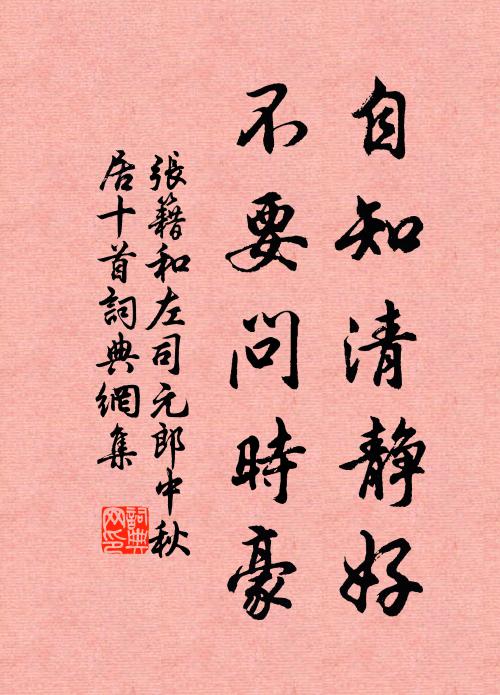 自知清靜好
不要問時豪
張籍和左司元郎中秋
居十首詞典網集
詞典
网印